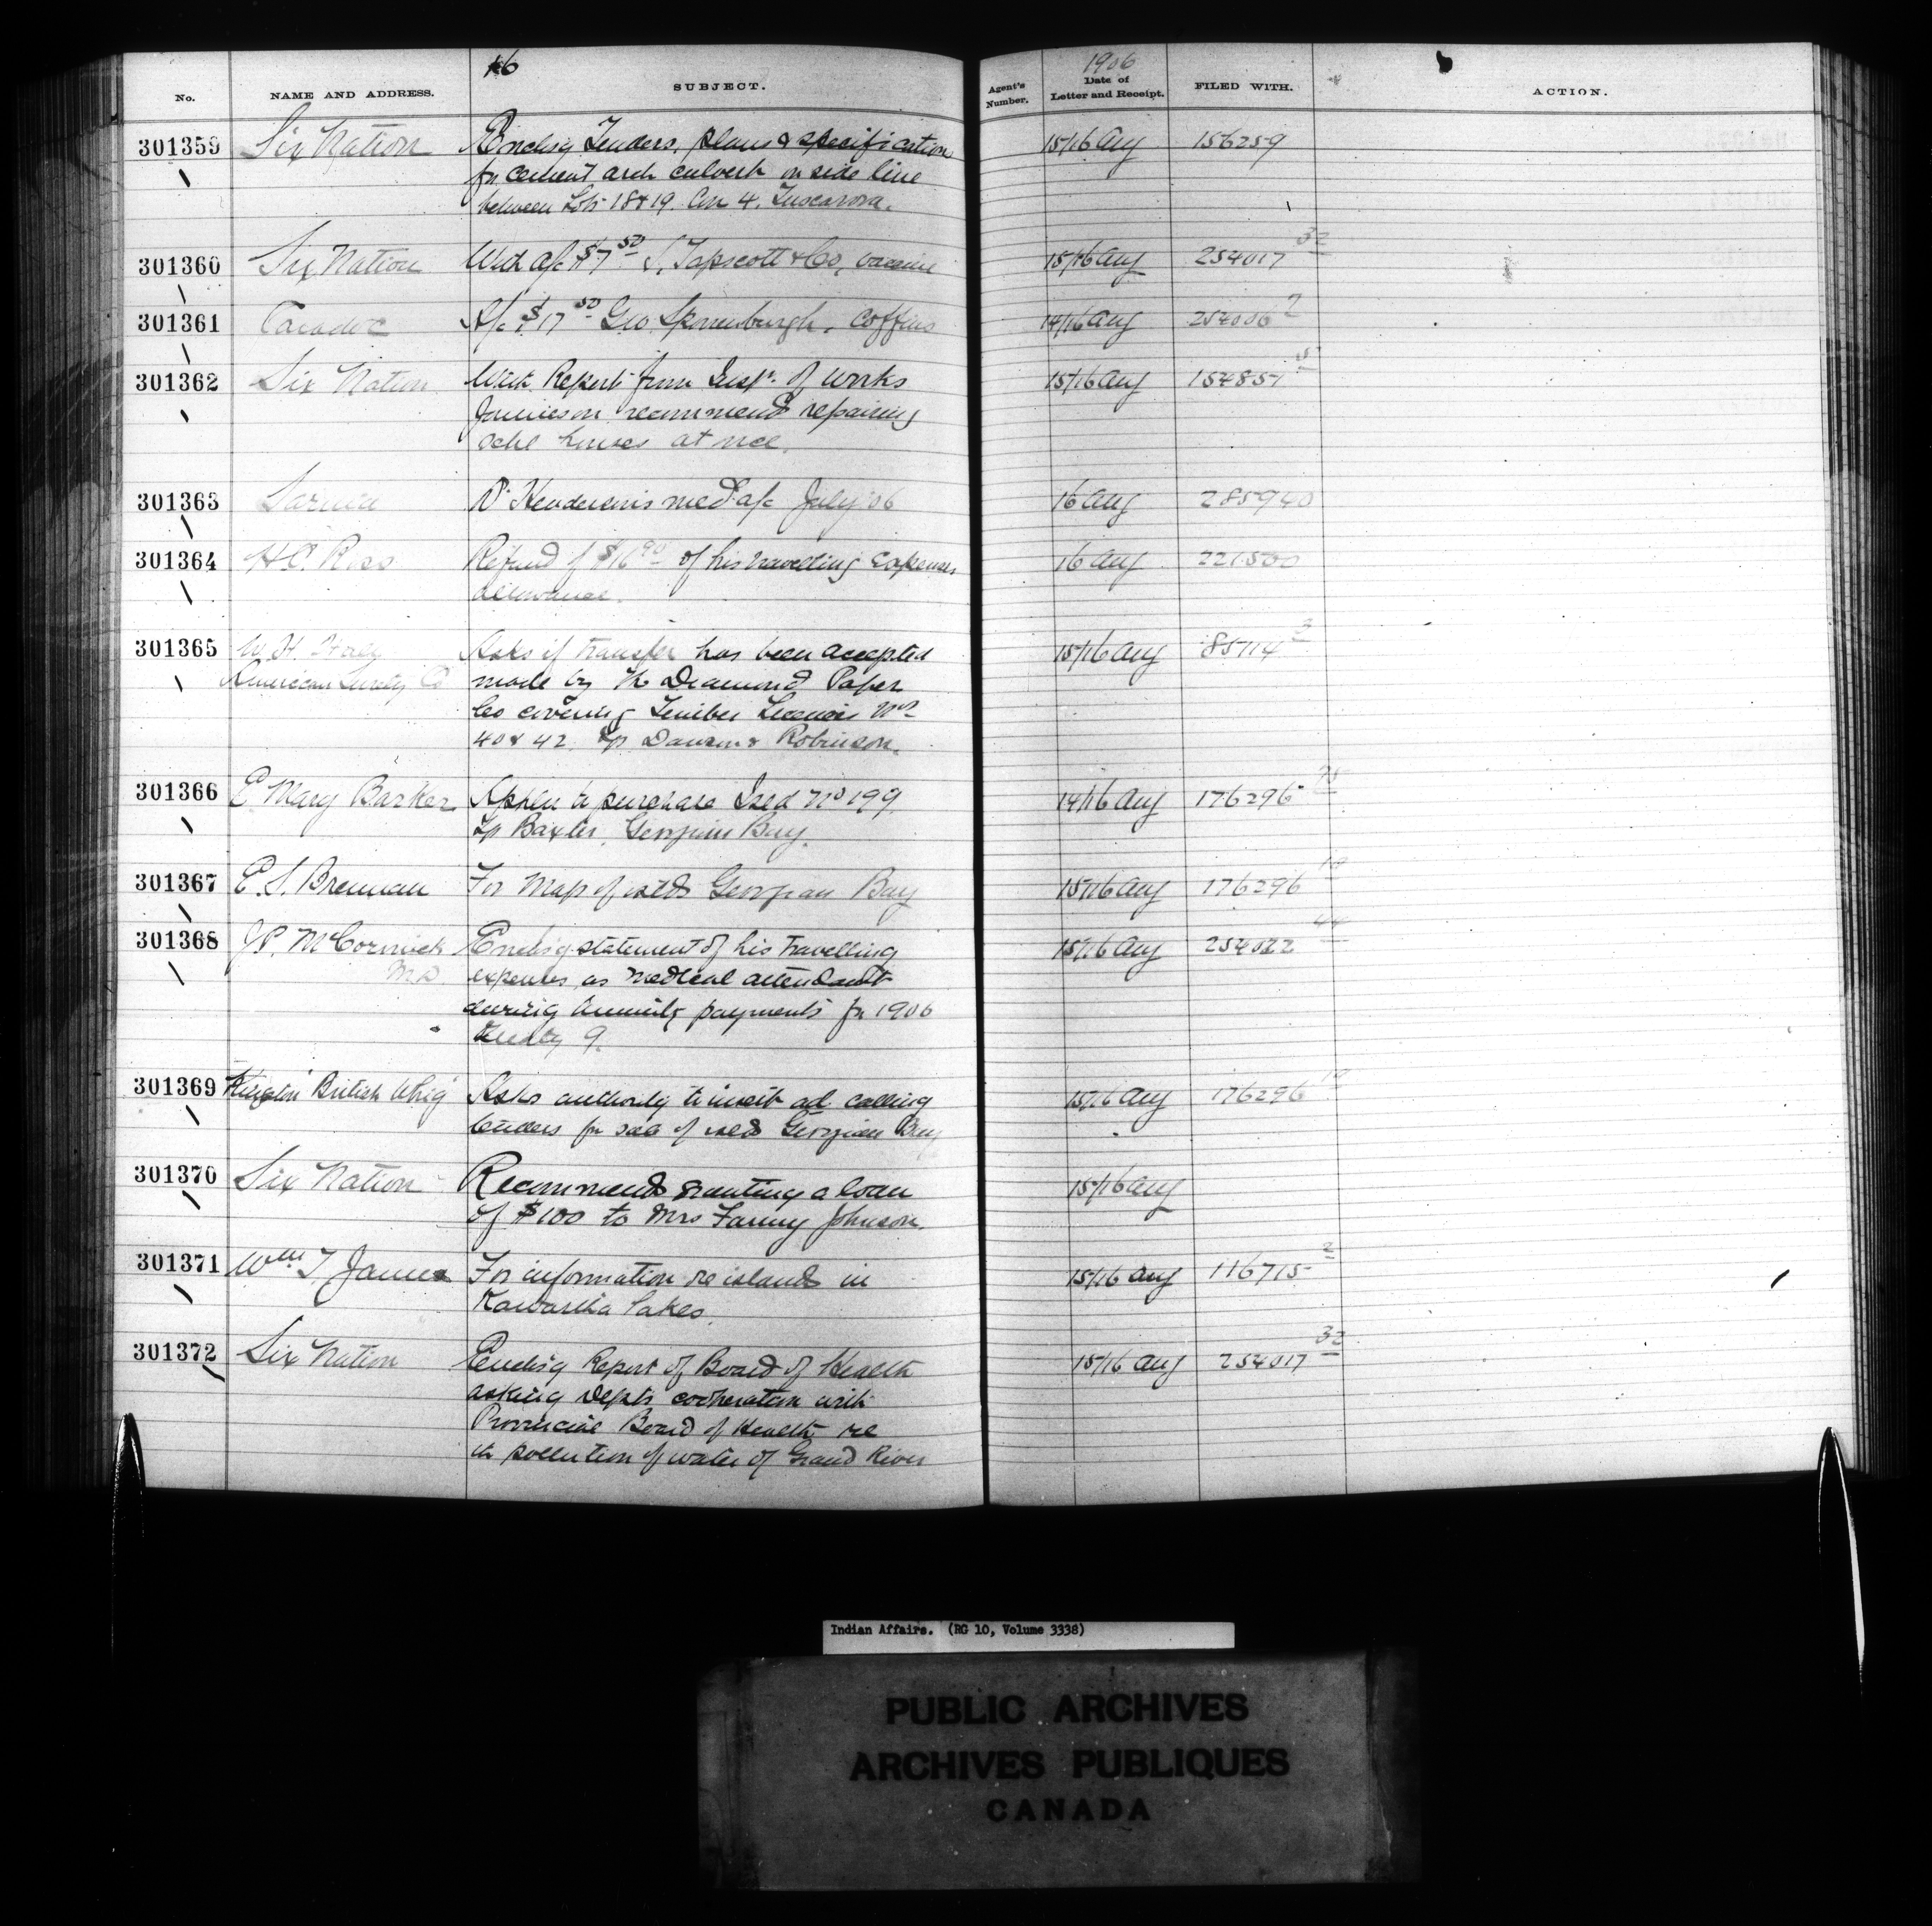 16
1906
No. NAME AND ADDRESS. SUBJECT. Agent's Number. Date of Letter and Receipt. FILED WITH. ACTION.
301359 Six Nation Enclosg Tenders, plans & specification 15/16 Aug 156259
for cement arch culvert on side line
between Lots 18 & 19. Con 4. Tuscarora.
301360 Six Nation With a/c $7.50 S. Tapscott & Co, vaccine 15/16 Aug 254017 32
301361 Caradoc A/c $17.50 Geo Sponenburgh, Coffins 14/16 Aug 254006 2
301362 Six Nation With Report from Inspr. of Works 15/16 Aug 154857
Jamieson recommends repairing
schl houses at once.
301363 Sarnia Dr Henderson's med a/c July '06 16 Aug 285940
301364 H.C. Ross Refund of $16.90 of his travelling expenses 16 Aug 221500
allowance.
301365 W. H. Asks if transfer has been accepted 15/16 Aug 85114 3
American Surety Co made by the Diamond Paper
Co covering Timber Licenses Nos
40 & 42. Tp Dawson & Robinson.
301366 E Mary Barker Applen to purchase Isld No 199 14/16 Aug 176296 75
Tp Baxter, Georgian Bay.
301367 E. S. Brennan For Map of islds Georgian Bay 15/16 Aug 176296 10
301368 J.P. McCormick Enclosg statement of his travelling 15/16 Aug 254022 44
M.D. expenses as medical attendant
during annuity payments for 1906
treaty 9.
301369 Kingston British Whig Asks authority to insert ad calling 15/16 Aug 176296 10
tenders for sale of islds Georgian Bay
301370 Six Nation Recommends granting a loan 15/16 Aug
of $100 to Mrs Fanny Johnson.
301371 Wm T. James For information re islands in 15/16 Aug 116715 2
Kawartha Lakes.
301372 Six Nation Enclosg Report of Board of Health 15/16 Aug 254017 32
asking Depts cooperation with
Provincial Board of Health re
the pollution of water of Grand River
Indian Affairs. (RG 10, Volume 3338)
PUBLIC ARCHIVES
ARCHIVES PUBLIQUES
CANADA